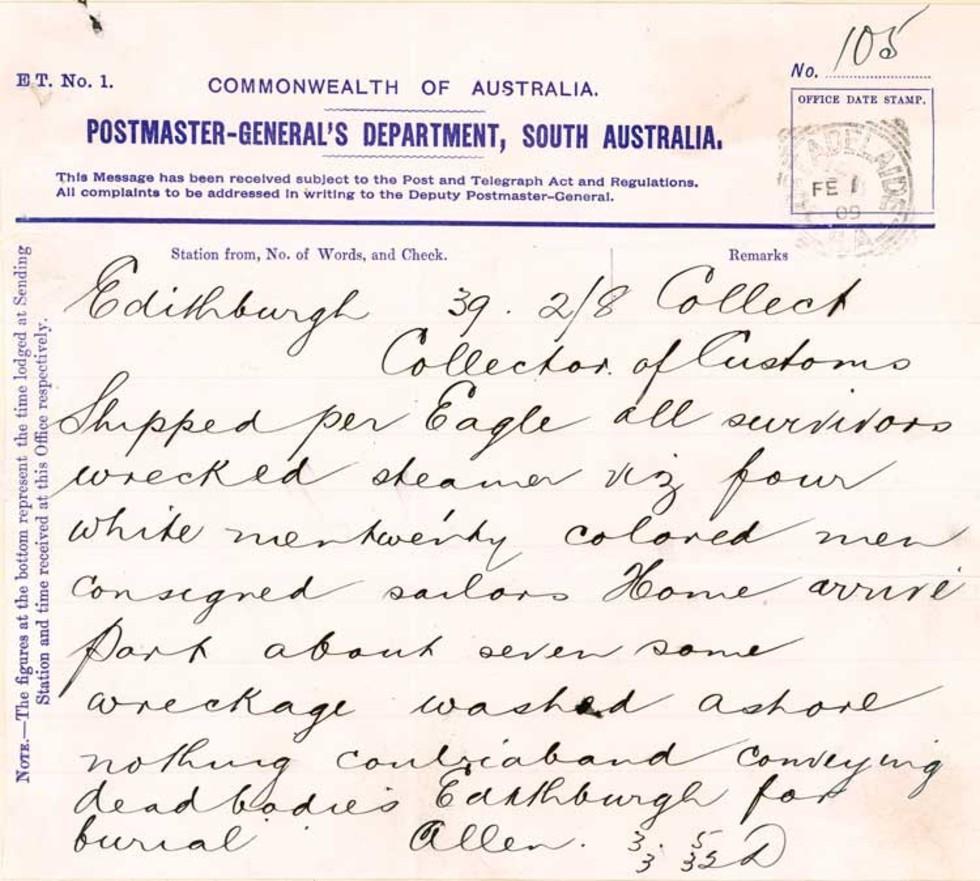 105
E T. No. 1.
COMMONWEALTH OF AUSTRALIA.
No.
OFFICE DATE STAMP.
POSTMASTER-GENERAL'S DEPARTMENT, SOUTH AUSTRALIA.
This Message has been received subject to the Post and Telegraph Act and Regulations.
All complaints to be addressed in writing to the Deputy Postmaster-General.
ADELAIDE
FE 1
09
S A
Station from, No. of Words, and Check.
Remarks
Edithburgh 39. 2/8 Collect
Collector. of Customs
Shipped per Eagle all survivors
wrecked steamer viz four
white men twenty colored men
consigned sailors Home arrive
Port about seven some
wreckage washed ashore
nothing contraband conveying
dead bodies Edithburgh for
burial Allen. 3. 5
3 35 D
NOTE.—The figures at the bottom represent the time lodged at Sending
Station and time received at this Office respectively.